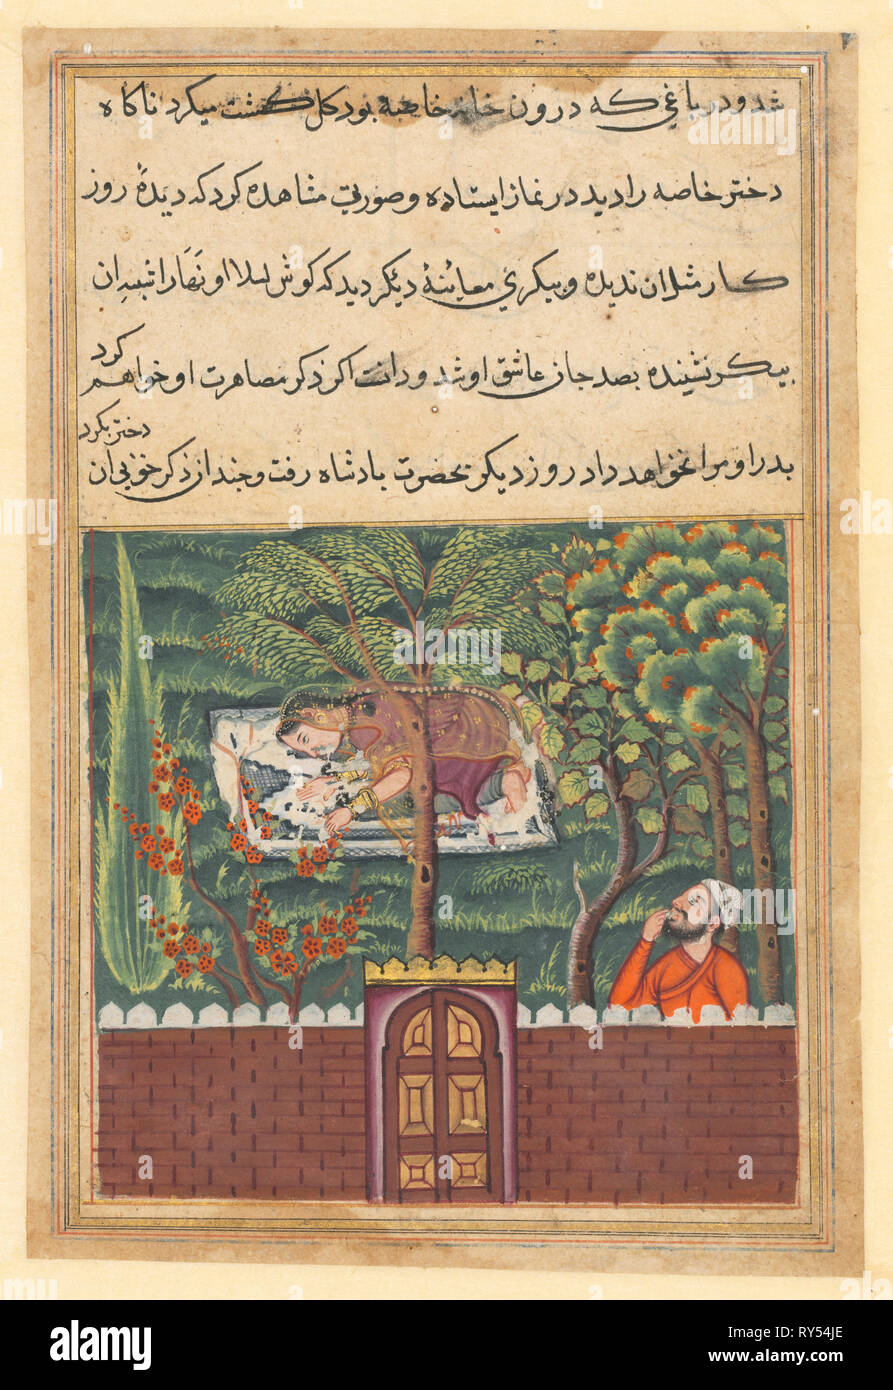 شد و در باغی که درون خانه خاصه بود کل کشت میکرد ناکاه
دختر خاصه را دید در نماز ایستاده و صورتی مشاهده کرد که دیدهٔ روز
کار مثل ان ندیده و پیکری معاینهٔ دیگر دید که کوش لیلا او نَهَار اشبه ان
پیکر نشینده بصد جان عاشق او شد و دانست اکر ذکر مصاهرت او خواهم کرد
پدر او مرا نخواهد داد روز دیکر بحضرت بادشاه رفت و چندان ذکر خوبی ان دختر بکرد
alamy
Image ID: RY54JE
www.alamy.com